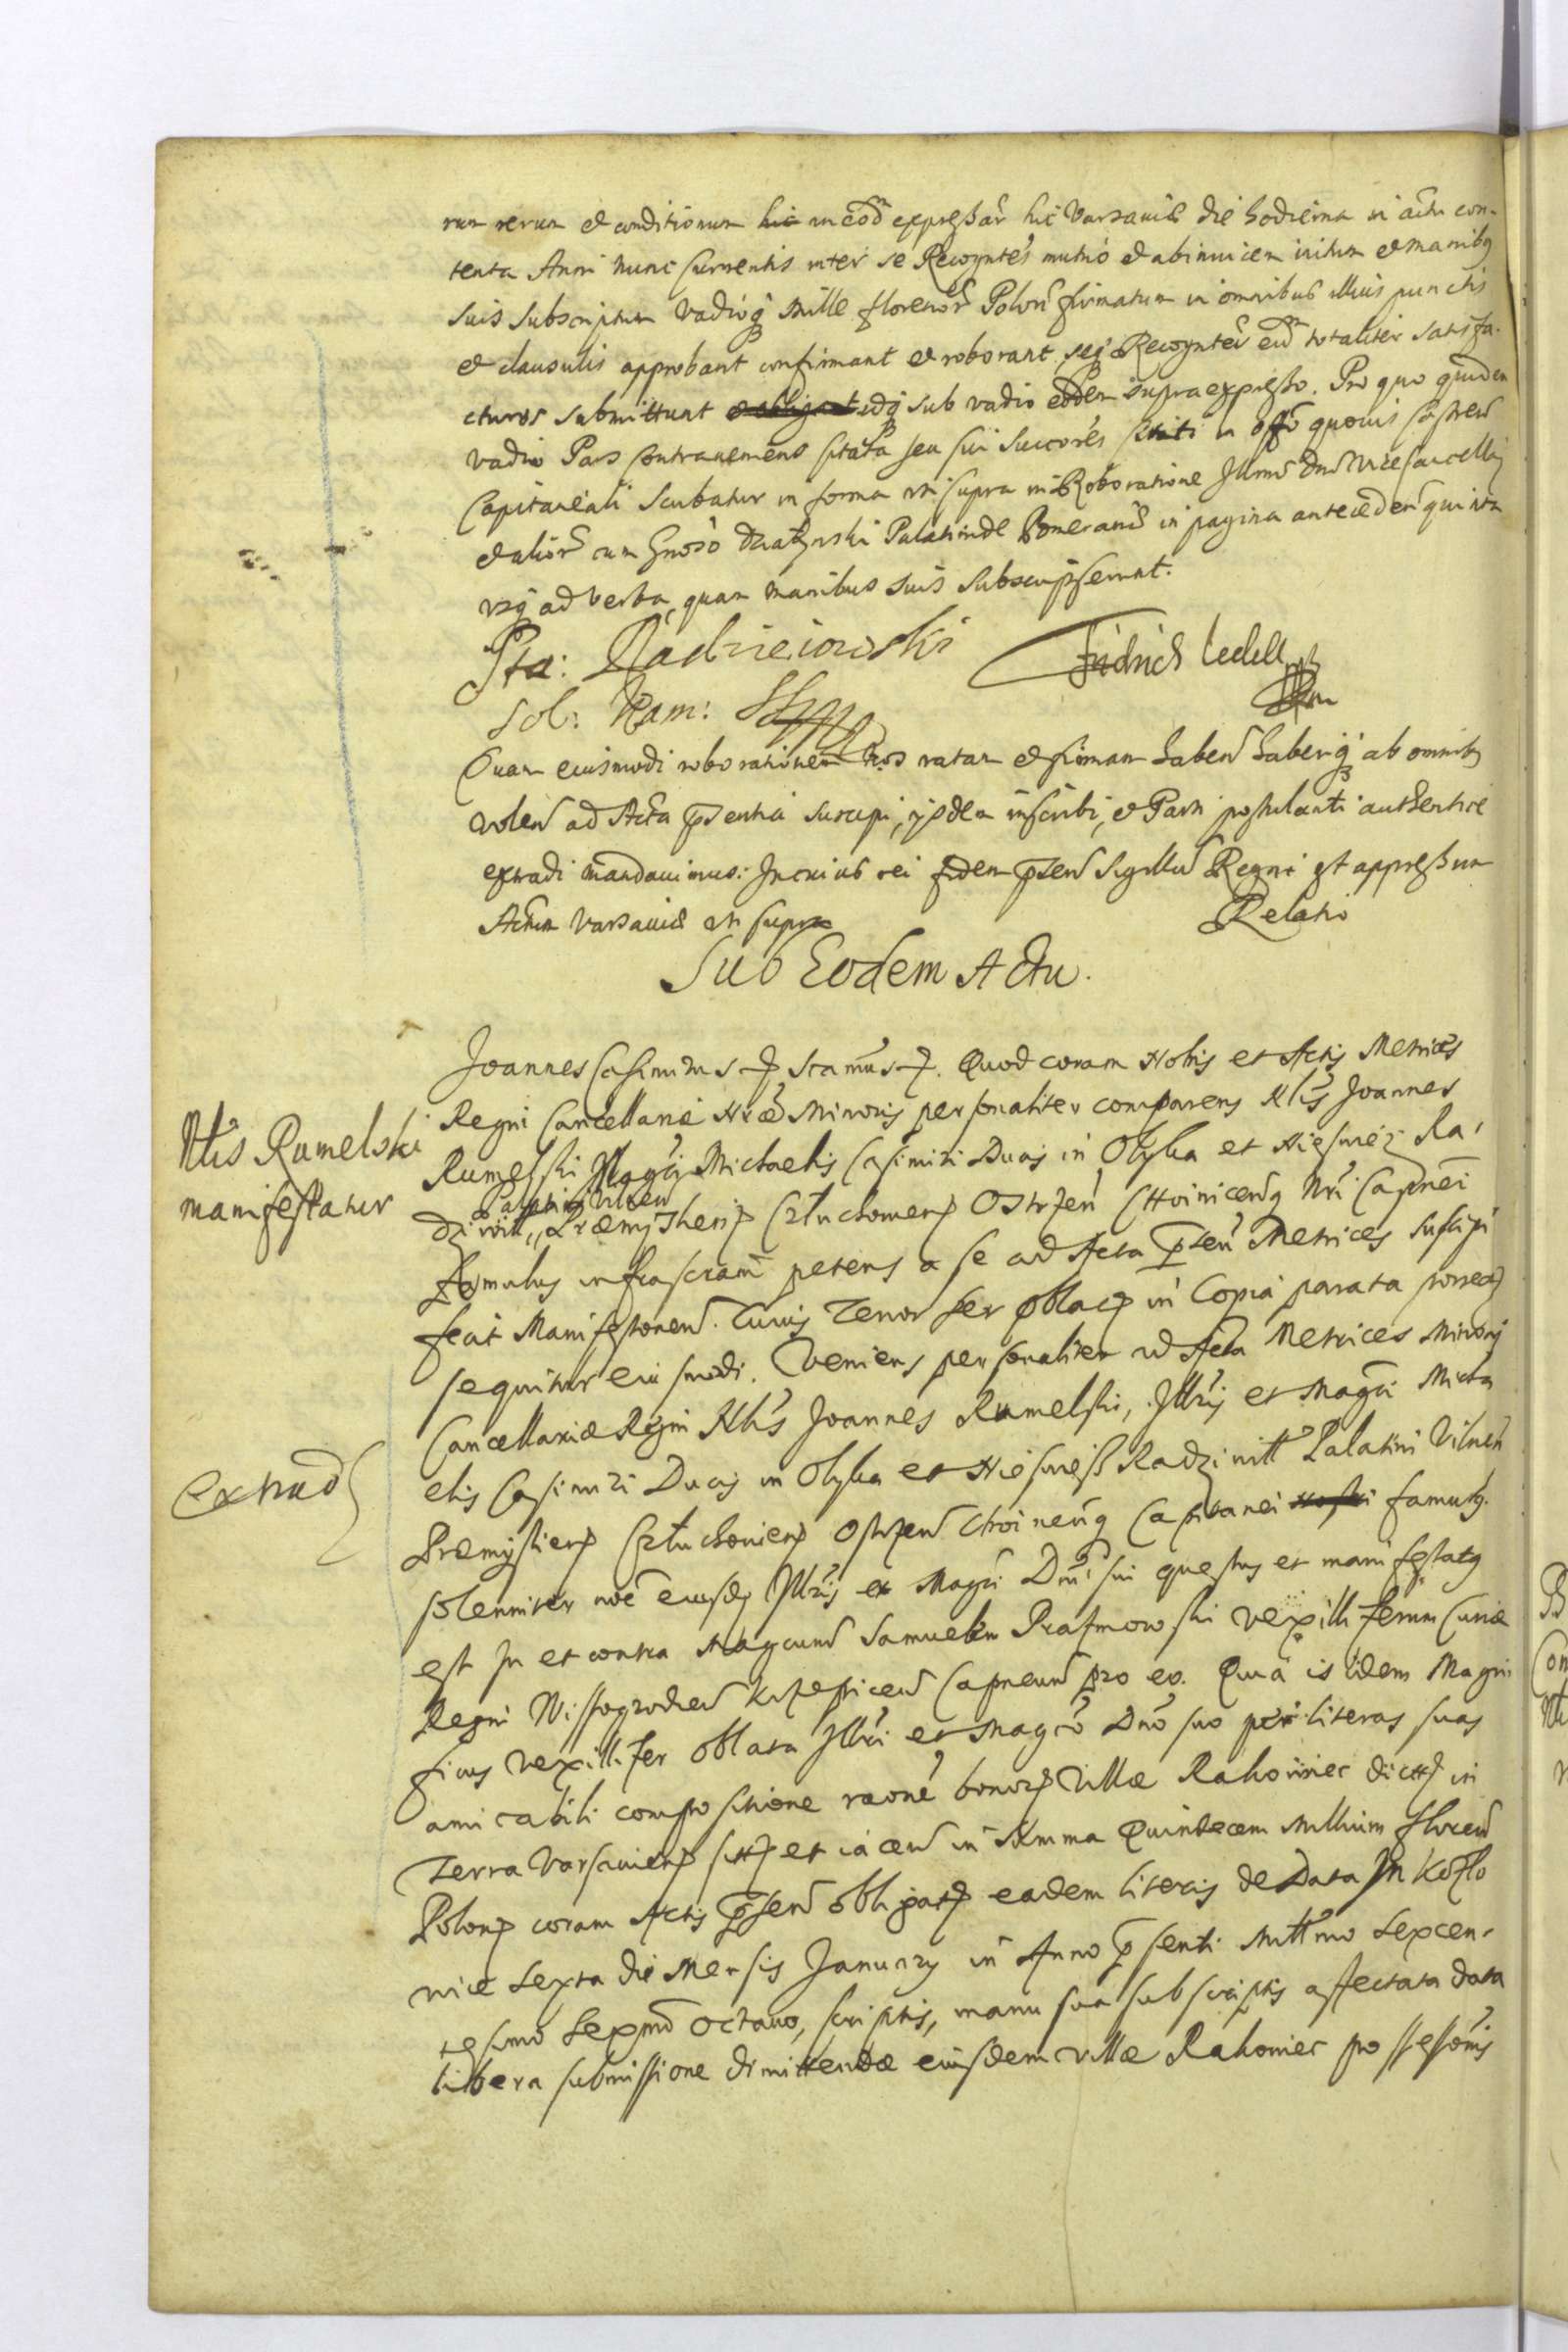 rum rerum et conditionum hic in eod expressar hic Varsaviæ die hodierna in actu con-
tenta Anni nunc Currentis inter se Recogntes mutuo et ab invicem initum et manibq
suis subscriptum vadioq mille florenor Polon firmatum in omnibus illius punctis
et clausulis approbant confirmant et roborant seq Recogntes eid totaliter satisfa-
cturos submittunt idq sub vadio eodem supra expresso. Pro quo quidem
vadio Pars contraveniens sui Succores citati in offo quovis Castren
Capitaneali in forma uti supra in Roboratione Illmi Dni ViceCancellarij
et alior cum Gnoso Działynski Palatinide Pomeraniæ in pagina anteceden qui ita
usq ad verba, quam manibus suis subscripserunt.
Sta: Radzieiowski Fridrich Ledell
Sol: Kam:
Quam eiusmodi roborationem Nos ratam et firmam haben haberiq ab omnibq
volen ad Acta psentia suscipi, ijsdem inscribi, et Parti postulanti authentice
extradi mandavimus. In cuius rei fidem psen Sigillu Regni est appressum
Actum Varsaviæ ut supra Relatio
Sub Eodem Actu.
Joannes Casimirus Quod coram Nobis et Actis Metrices
Regni Cancellariæ Nræ Minoris personaliter comparens Nblis Joannes
Ntlis Rumelski
manifestatur
Rumelski Magci Michaelis Casimiri Ducis in Olyka et Niesuiez Ra-
Palatini Vilnen
dziwill,, Præmijslien Człuchomen Ostrzen Choinicenq Nri Capnei
famulus infrascram petens a se ad Acta psen Metrices suscipi
fecit Manifestonem. Cuius Tenor per oblaq in Copia parata
sequitur eiusmodi. Veniens personaliter ad Acta Metrices Minoris
Cancellariæ Regni Nblis Joannes Rumelski, Illris et Magci Micha
elis Casimiri Ducis in Olyka et Niesuiess Radziwill Palatini Vilnen
extrad
Premyslien Człuchovien Ostrzen Choinenq Capitanei nostri famulq.
solenniter noe eiusdq Illris et Magci Dni sui questus et manifestatq
est In et contra Magcum Samuelem Prazmowski vexilliferum Curiæ
Regni Wissogroden Krzepicen Capneum pro eo. Quia is idem Magni
ficus vexillifer oblata Illri et Magco Dno suo per literas suas
amicabili compositione raone bonor Villæ Rakowiec dictæ in
Terra Varsavien sitt et iacen in summa Quindecem Millium floren
Polon coram Actis psen obligat eadem literis de Data In Kozlo
wice sexta die Mensis January in Anno psenti Mittmo sexcen-
tesimo sexmo octavo, scriptis, manu sua subscriptis affectata data
libera submissione dimittendæ eiusdem villæ Rakowiec possessoris